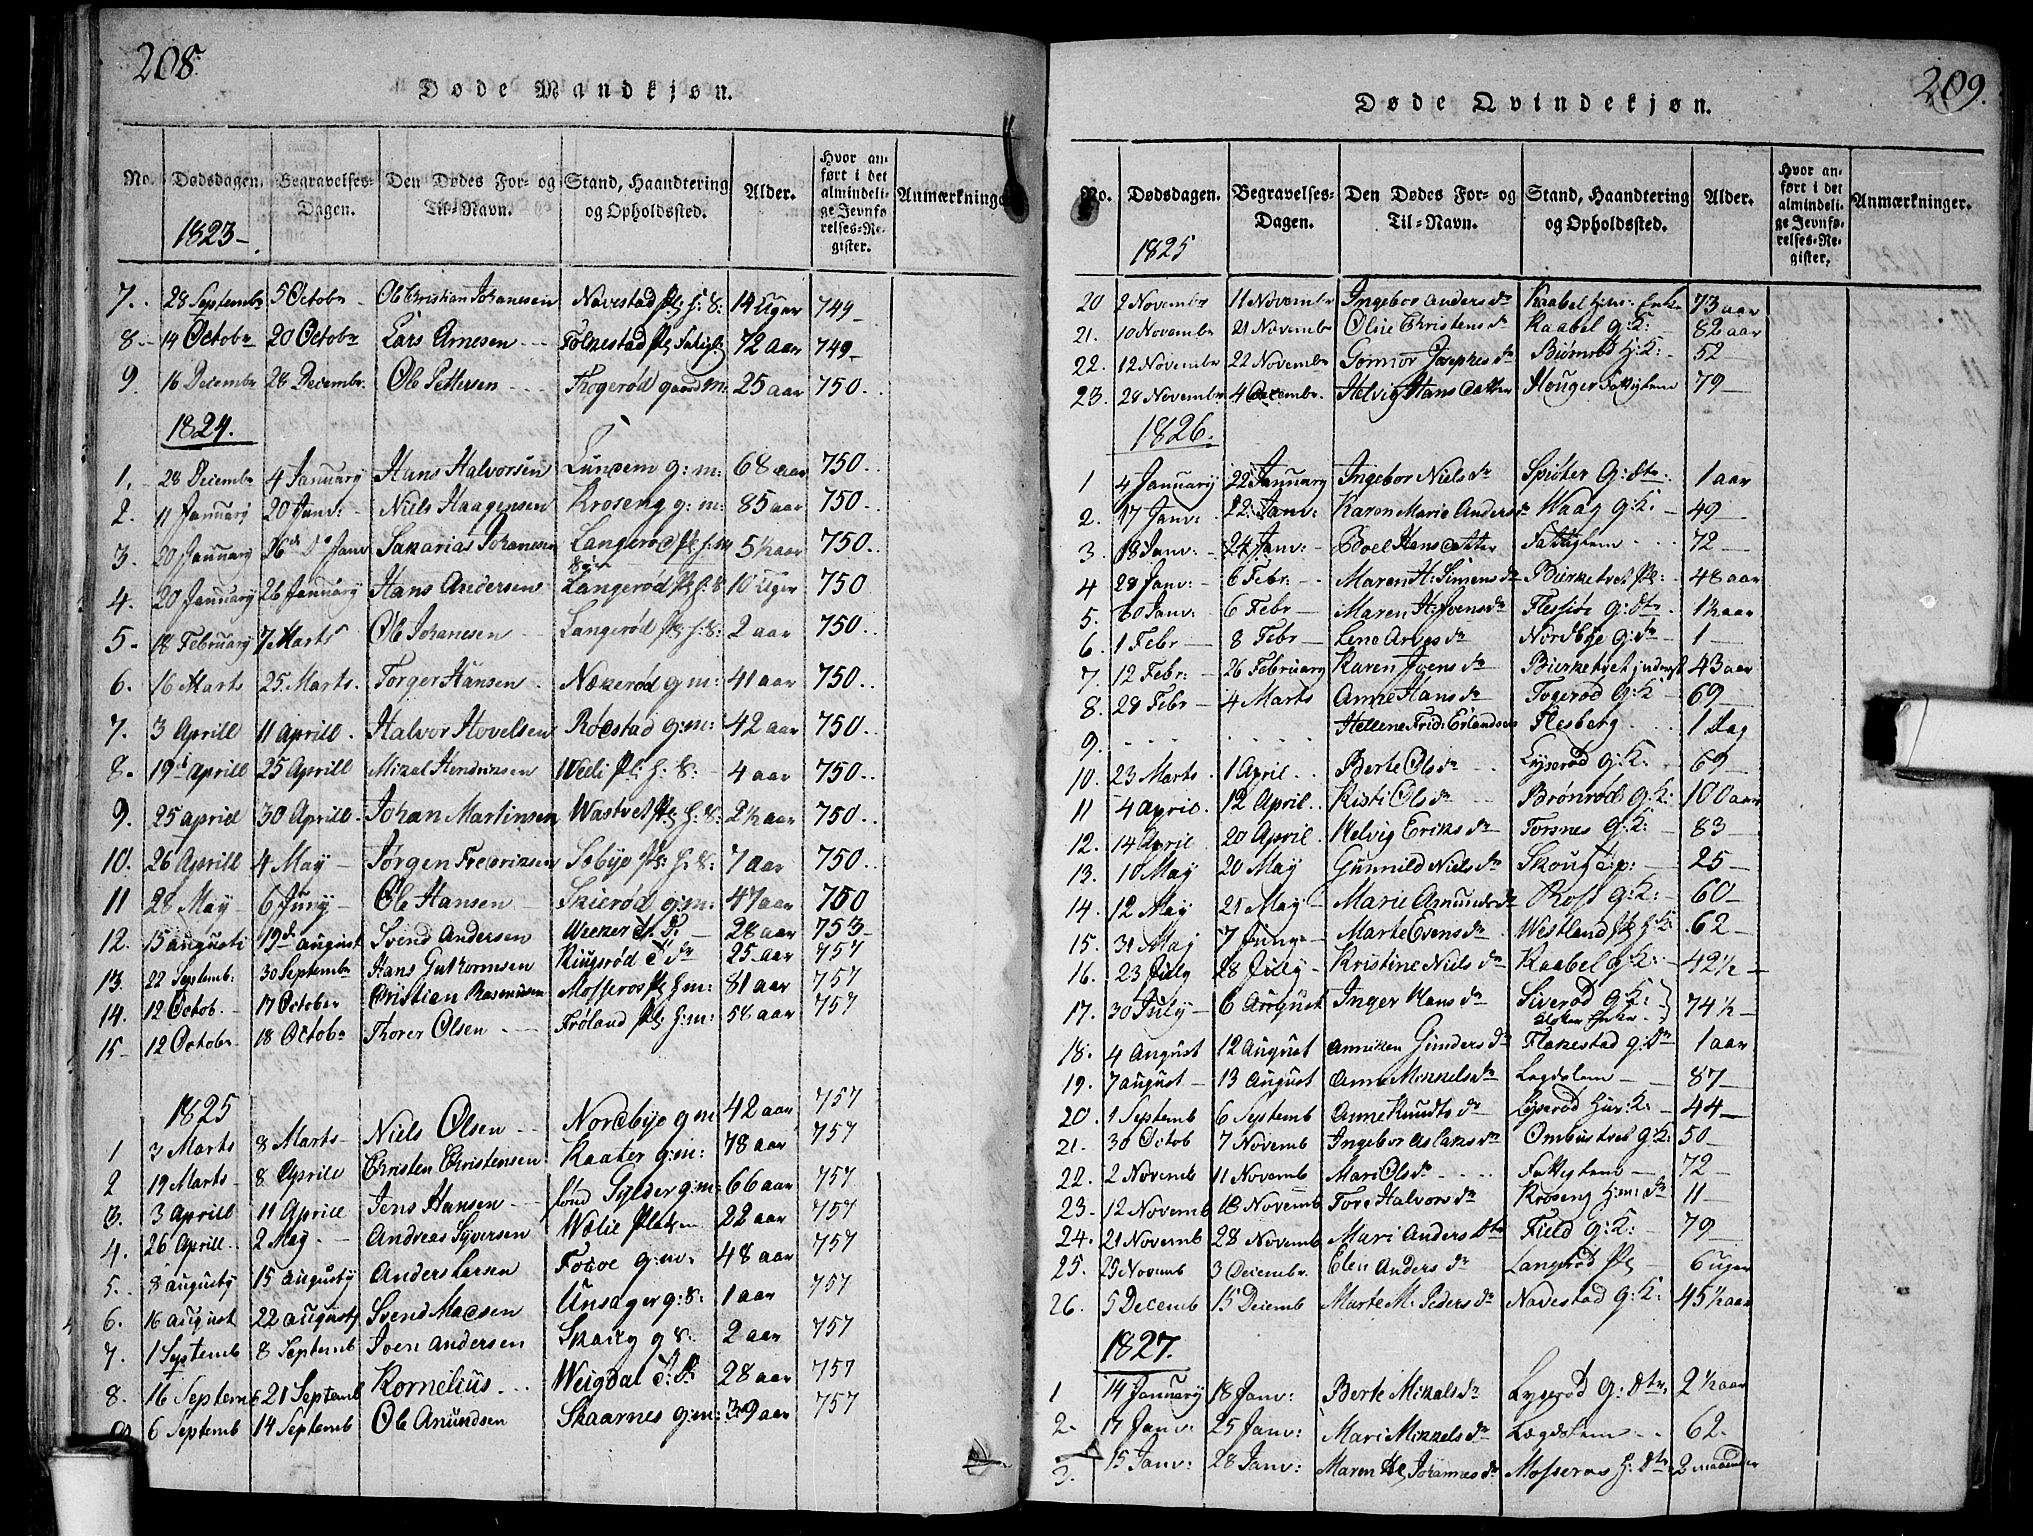 208.
Døde Mandkjøn.
No. Dødsdagen. Begravelses-Dagen. Den Dødes For- og Til-Navn. Stand, Haandtering og Opholdssted. Alder. Hvor anført i det almindelige Jevnførelses-Register. Anmærkninger
1823
7. 28 Septembr 5 Octobr Ole Christian Johanesen Navestad Pl: h: S: 14 Uger 749
8 14 Octobr 20 Octobr Lars Arnesen Folkestad Pl 72 aar 749
9. 16 Decembr 28 Decembr. Ole Pettersen gaard m: 25 aar 750
1824.
1. 28 Decembr 4 January Hans Halvorsen Lundem g: m: 68 aar 750
2. 11 January 20 Janv: Niels Haagensen Kroseng g: m: 85 aar 750
3. 20 January 26 Janv Sakarias Johanesen Langerød Pl 5½ aar 750
4. 20 January 26 January Hans Andersen Langerød Pl h: S 10 Uger 750
5. 18 February 7 Marts Ole Johanesen Langerød Pl h: S: 2 aar 750
6. 16 Marts 25. Marts. Torger Hansen Nækerød g: m: 41 aar 750
7. 3 Aprill 11 Aprill Halvor Hovelsen Rødstad g: m: 42 aar 750
8. 19 Aprill 25 Aprill Mikal Hendriksen Weli Pl: h: S: 4 aar 750
9. 25 aprill 30 Aprill Johan Martinsen Wastvet Pl h: S: 2½ aar 750
10. 26 Aprill 4 May Jørgen Fredriksen Sebye Pl: h: S: 7 aar 750
11 28 May 6 Juny Ole Hansen Skierød g: m: 47 aar 750
12. 15 augusti 19 august Svend Andersen 28 aar 753
13. 22 Septemb. 30 Septembr Hans Guttormsen Ringsrød 25 aar 757
14. 12 Octob. 17 October Christian Rasmussen Mosseros Pl h: m: 81 aar 757
15 12 Octobr 18 Octobr Thorer Olsen Frøland Pl h: m: 58 aar 757
1825
1 3 Marts 8 Marts Niels Olsen Nordbye g: m 42 aar 757
2 19 Marts 8 Aprill Christen Christensen Kaater g: m: 78 aar 757
3. 3 Aprill 11 Aprill Jens Hansen Sylder g: m: 66 aar 757
4. 26 Aprill 2 May Andreas Syversen Welie Pladsm 22 aar 757
5. 8 augusty 15 augusty Anders Larsen g: m. 48 aar 757
6. 16 august 22 augusty Svend Madsen Unsager g: S: 1 aar 757
7. 1 Septemb 8 Septemb Iven Andersen Skaug g: S: 2 aar 757
8. 16 Septemb 21 Septemb Kornelius Weigdal 28 aar 757
9 6 Septemb 14 Septemb Ole Amundsen Skaarnes g: m: 39 aar 757
209.
Døde Qvindekjøn.
No. Dødsdagen. Begravelses-Dagen. Den Dødes For- og Til-Navn. Stand, Haandtering og Opholdssted. Alder. Hvor anført i det almindelige Jevnførelses-Register. Anmærkninger.
1825
20 2 Novembr 11 Novembr Ingebor Anders dr Kaabel Hm: Enke 73 aar
21. 10 Novembr 21 Novembr Olie Christens dr Kaabel g: K: 82 aar
22. 12 Novembr 22 Novembr Gomor Josephs dr Biørnrød H: K: 52
23. 28 Novembr 4 Decembr. Helvig Hans datter Houger Fattiglem 79
1826.
1 4 January 22 January Ingebor Niels dr Spister G: Dtr: 1 aar
2. 17 Janv: 22 Janv: Karen Marie Anders dr Waag G: K: 49
3. 18 Janv: 24 Janv: Boel Hans datter Fattiglem 72
4 28 Janv: 6 Febr: Maren H: Simens dr Bierketvet Pl: 48 aar
5. 30 Janv: 6 Febr Maren H: Jvens dr Flessiøe G: Dtr 1½ aar
6. 1 Febr 8 Febr Lene Arves dr Nordbye G: dr 1
7. 12 Febr: 26 February Karen Jvens dr Bierketvet inderst 43 aar
8. 28 Febr 4 Marts Anne Hans dr Togerød G: K 69
9. Hellene Frid: Erlandsen Flesberg 1 dag
10. 23 Marts 1 April Berte Ols dr Lyserød G: K: 69
11 4 April 12 April. Kisti Ols dr Brønrød G: K: 100 aar
12. 14 April 20 April Helvig Eriks dr Torsnes G: K: 83
13. 10 May 20 May Gunnild Niels dr Skougd: p: 25
14. 12 May 21 May Marie Amunds dr Ross G: K: 60
15. 31 May 7 Juny Marte Evens dr Westland Pl H: K: 62
16. 23 July 28 July Kristine Niels dr Kaabel G: K: 42½
17. 30 July 6 August Inger Hans dr Siverød G: K: Enke 74½
18. 4 August 12 August Anniken Gunders dr Flakestad G: Dr 1 aar
19. 7 august 13 August Anne Mikkels dr Legdslem 87
20. 1 Septemb 6 Septemb Anne Knudts dr Lyserød Hus: K: 44
21. 30 Octob 7 Novemb Ingebor Aslaks dr Ombustvet G: K: 50
22. 2 Novemb 11 Novemb Mari Ols dr Fattiglem 72
23. 12 Novemb 18 Novemb Tore Halvors dr Kroseng H: m: dr 11
24. 21 Novemb 28 Novemb Mari Anders dtr Field G: K: 79
25. 25 Novemb 3 Decembr. Elen Anders dr Langrød Pl 6 uger
26. 5 Decemb 15 Decemb Marte M. Peders dr Navestad G: K: 45½ aar
1827.
1 14 January 18 Janv: Berte Mikals dr Lyserød G: Dtr: 2½ aar
2. 17 Janv: 25 Janv: Mari Mikkels dr Lægdslem 62.
3. 15 Janv: 28 Janv: Maren Johannes dr Mosseros H: Dtr 2 maaneder